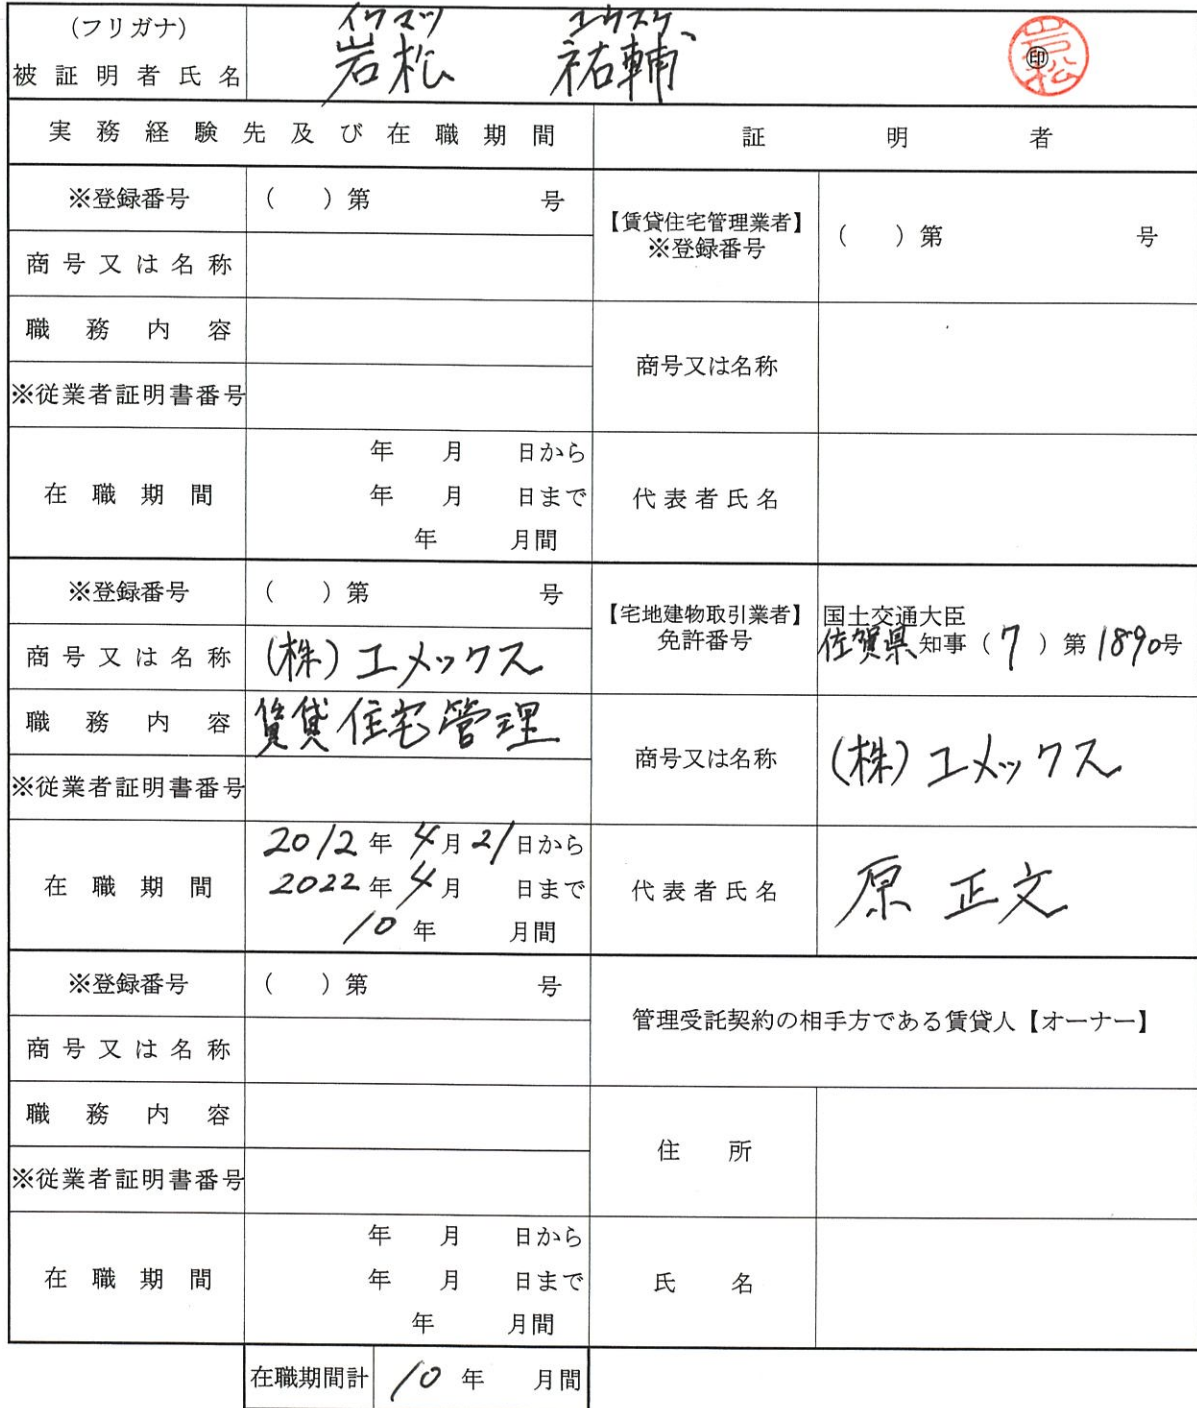 (フリガナ) イワマツ ユウスケ
被証明者氏名 岩松 祐輔 ㊞ 岩松
実務経験先及び在職期間 証明者
※登録番号 ( )第 号
【賃貸住宅管理業者】
※登録番号 ( )第 号
商号又は名称
職務内容
商号又は名称
※従業者証明書番号
年 月 日から
在職期間 年 月 日まで
年 月間
代表者氏名
※登録番号 ( )第 号
【宅地建物取引業者】
免許番号
国土交通大臣
佐賀県知事(7)第1890号
商号又は名称 (株)エメックス
職務内容 賃貸住宅管理
商号又は名称 (株)エメックス
※従業者証明書番号
2012年4月21日から
在職期間 2022年4月 日まで
10年 月間
代表者氏名 原 正文
※登録番号 ( )第 号
管理受託契約の相手方である賃貸人【オーナー】
商号又は名称
職務内容
住所
※従業者証明書番号
年 月 日から
在職期間 年 月 日まで
年 月間
氏名
在職期間計 10年 月間